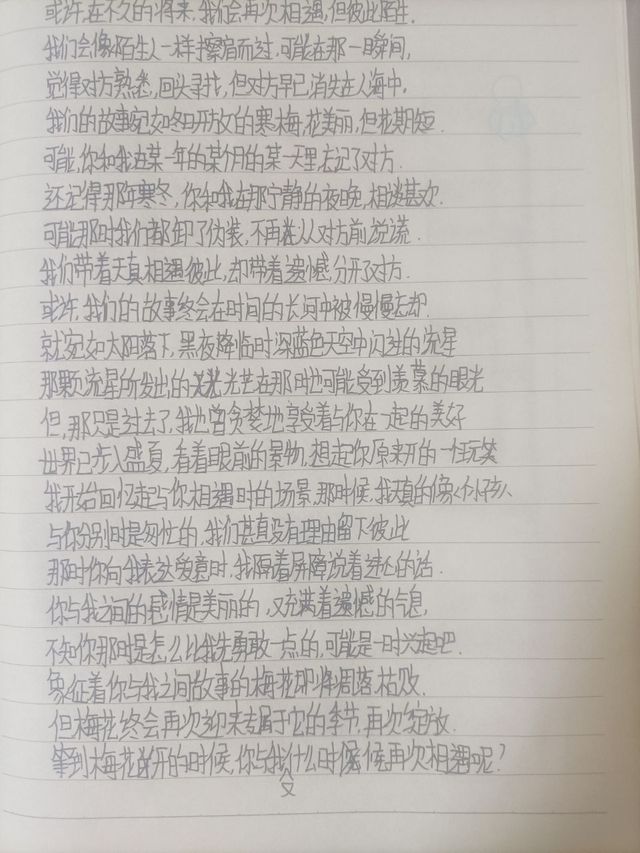 或许,在不久的将来,我们会再次相遇,但彼此陌生.
我们会像陌生人一样擦肩而过,可能在那一瞬间,
觉得对方熟悉,回头寻找,但对方早已消失在人海中.
我们的故事宛如冬日开放的寒梅,花美丽,但花期短.
可能,你和我在某一年的某个月的某一天里忘记了对方.
还记得那年寒冬,你和我在那宁静的夜晚,相谈甚欢.
可能那时我们都卸了伪装,不再在从对方前说谎.
我们带着天真相遇彼此,却带着遗憾分开了对方.
或许,我们的故事终会在时间的长河中被慢慢忘却.
就宛如太阳落下,黑夜降临时深蓝色天空中闪过的流星
那颗流星所发出的光芒在那时也可能受到羡慕的眼光
但,那只是过去了,我也曾贪婪地享受着与你在一起的美好
世界已步入盛夏,看着眼前的景物,想起你原来开的一些玩笑
我开始回忆起与你相遇时的场景,那时候,我天真的像个小孩、
与你分别时是匆忙的,我们甚直没有理由留下彼此
那时你向我表达爱意时,我隔着屏障说着违心的话.
你与我之间的感情是美丽的,又充满着遗憾的气息,
不知你那时是怎么比我先勇敢一点的,可能是一时兴起吧.
象征着你与我之间故事的梅花即将凋落,枯败.
但梅花终会再次迎来专属于它的季节,再次绽放.
等到梅花盛开的时候,你与我又什么时候候再次相遇呢?